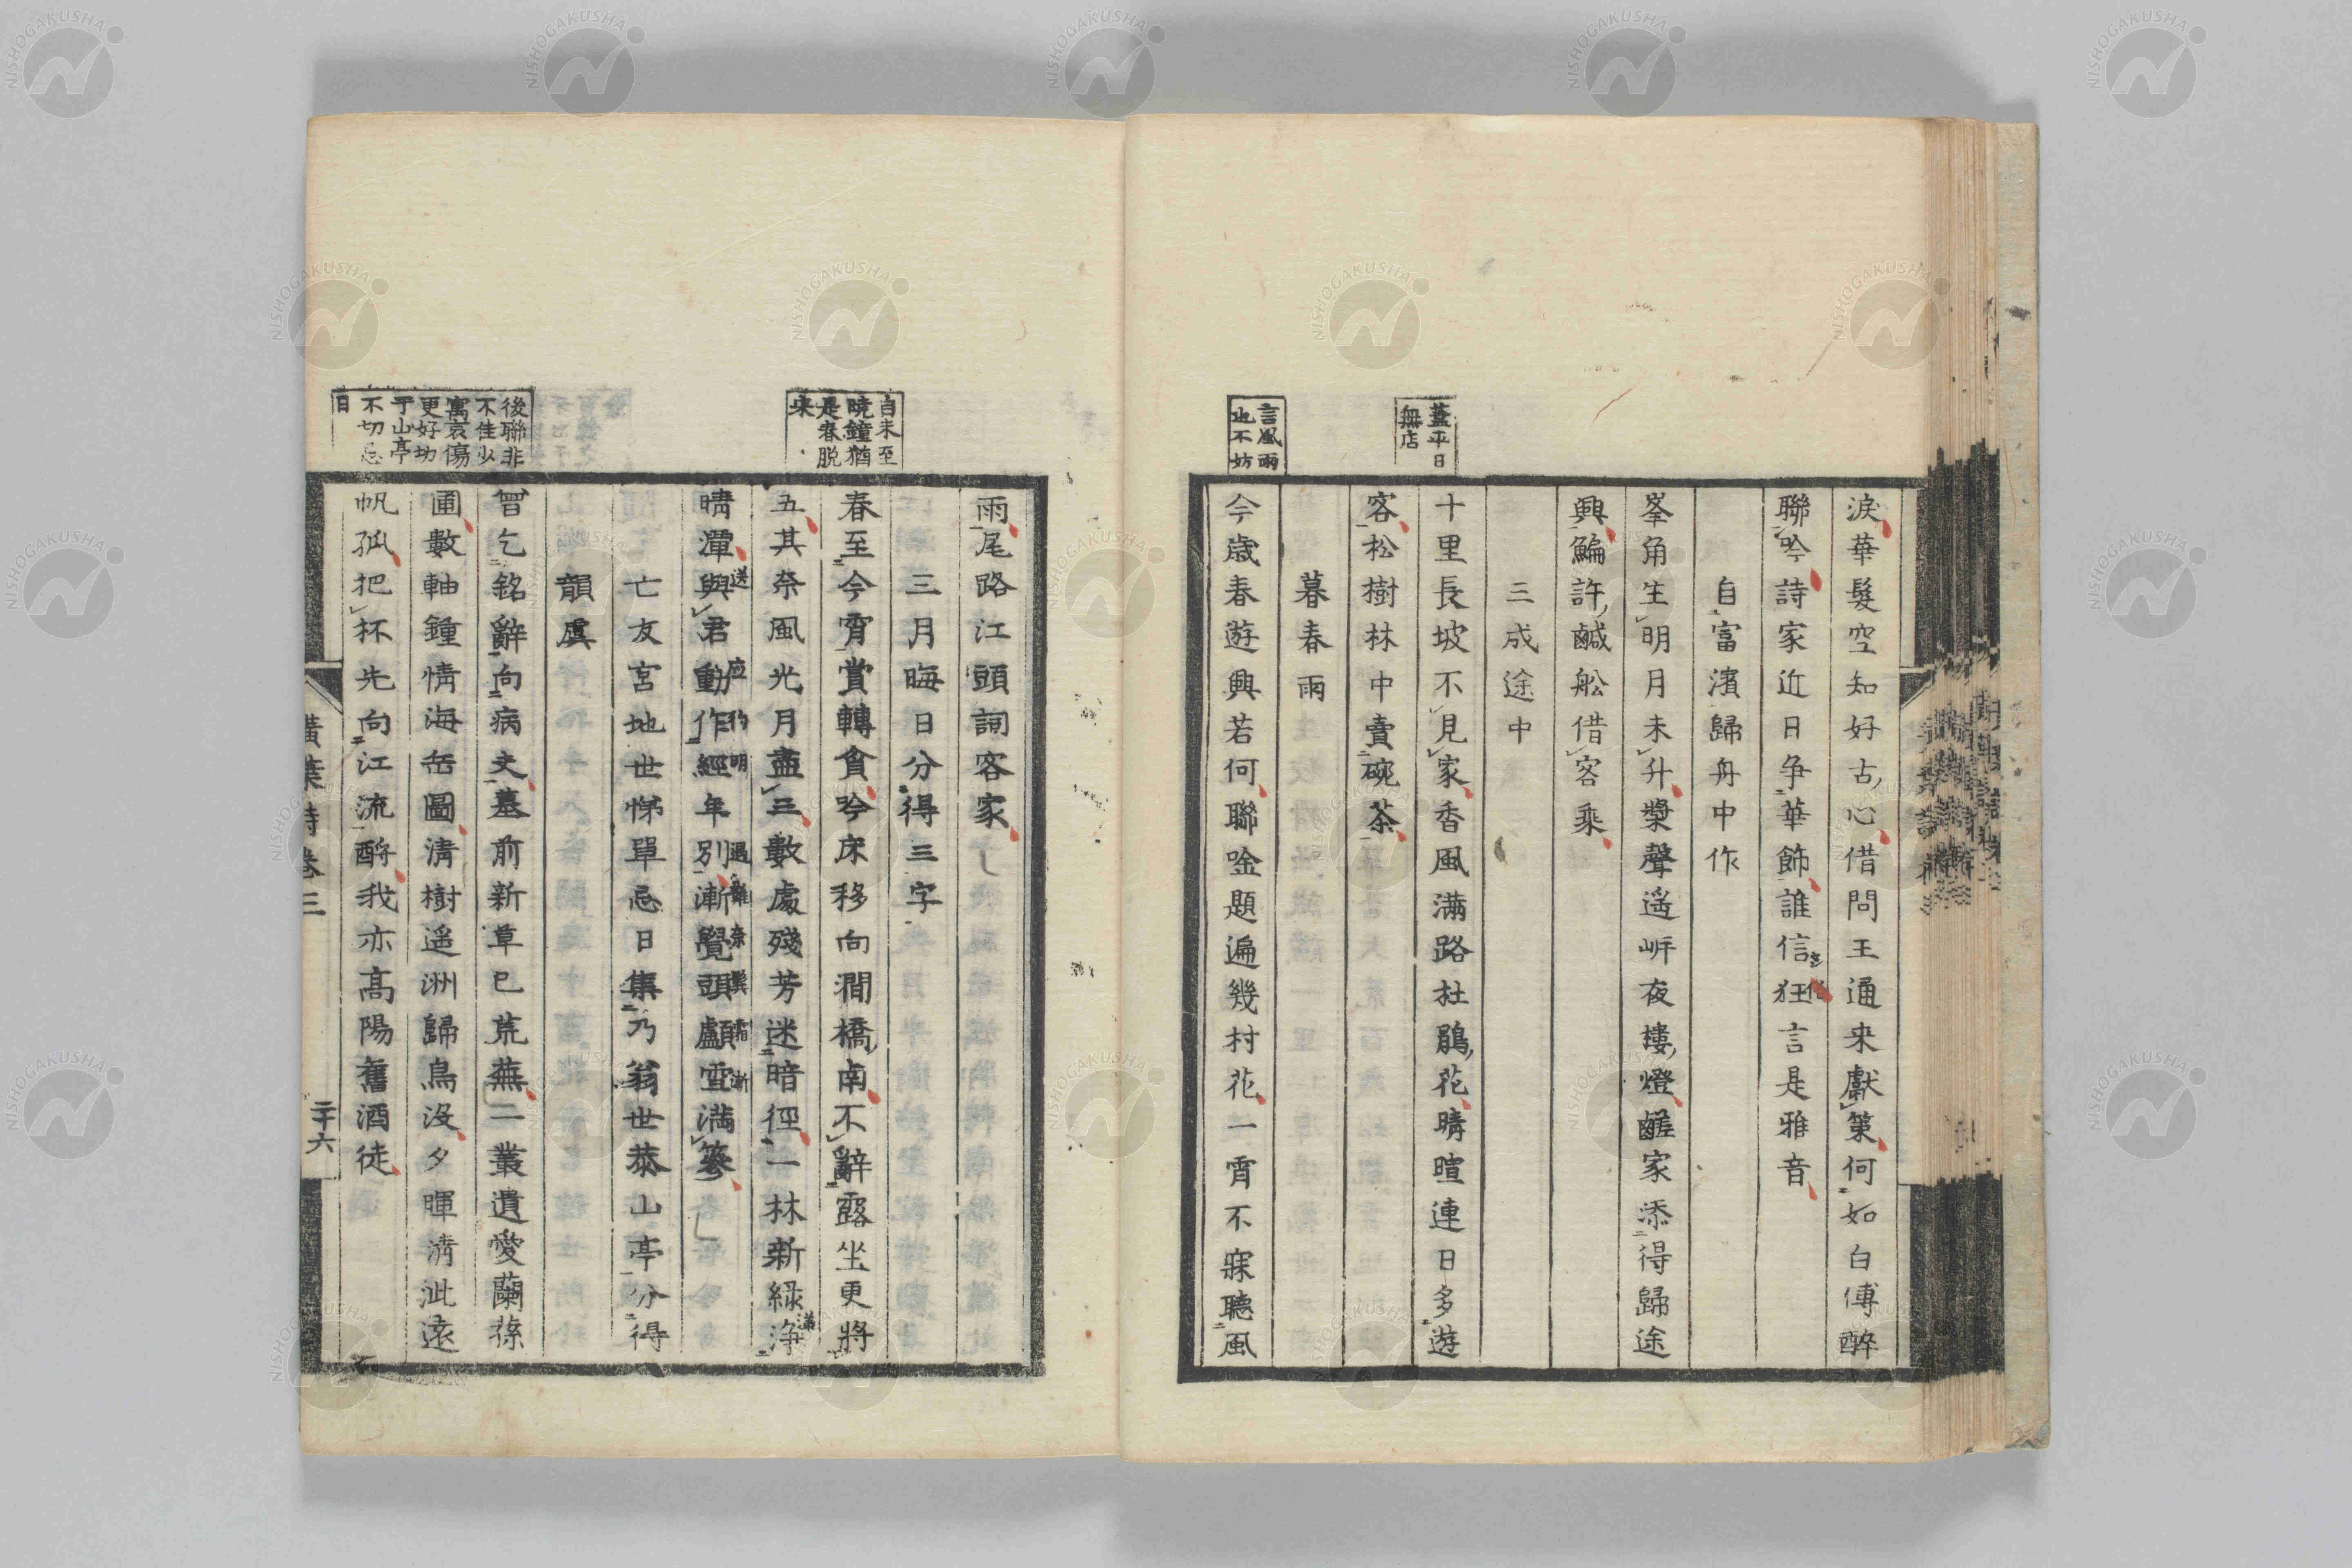 淚華髮空知好古心借問王通来獻策何如白傅醉
聯吟詩家近日争華飾誰信狂言是雅音
自富濱歸舟中作
峯角生明月未升槳聲遥㟁夜樓燈鹺家添得歸途
興鯿許鹹舩借客乘
三成途中
十里長坡不見家香風滿路杜鵑花晴暄連日多遊
客松樹林中賣碗茶
暮春雨
今歳春遊興若何聯唫題遍幾村花一宵不寐聽風
蓋平日
無店
言風雨
也不妨
雨尾路江頭詞客家
三月晦日分得三字
春至今宵賞轉貪吟床移向澗橋南不辭露坐更將
五其奈風光月盡三數處殘芳迷暗徑一林新綠淨
滿
晴潭與君動作經年別漸覺頭顱雪満簪
亡友宮地世悌單忌日集乃翁世恭山亭分得
韻虞
曾乞銘辭向病夫墓前新草已荒蕪一叢遺愛蘭蓀
圃數軸鍾情海岳圖清樹遥洲歸鳥没夕暉清沚遠
帆孤把杯先向江流酹我亦高陽舊酒徒
自来至
曉鐘猶
是春脱
来
後聯非
不佳少
寓哀傷
更好切
于山亭
不切忌
日
黄葉詩 卷三
二十六
NISHOGAKUSHA